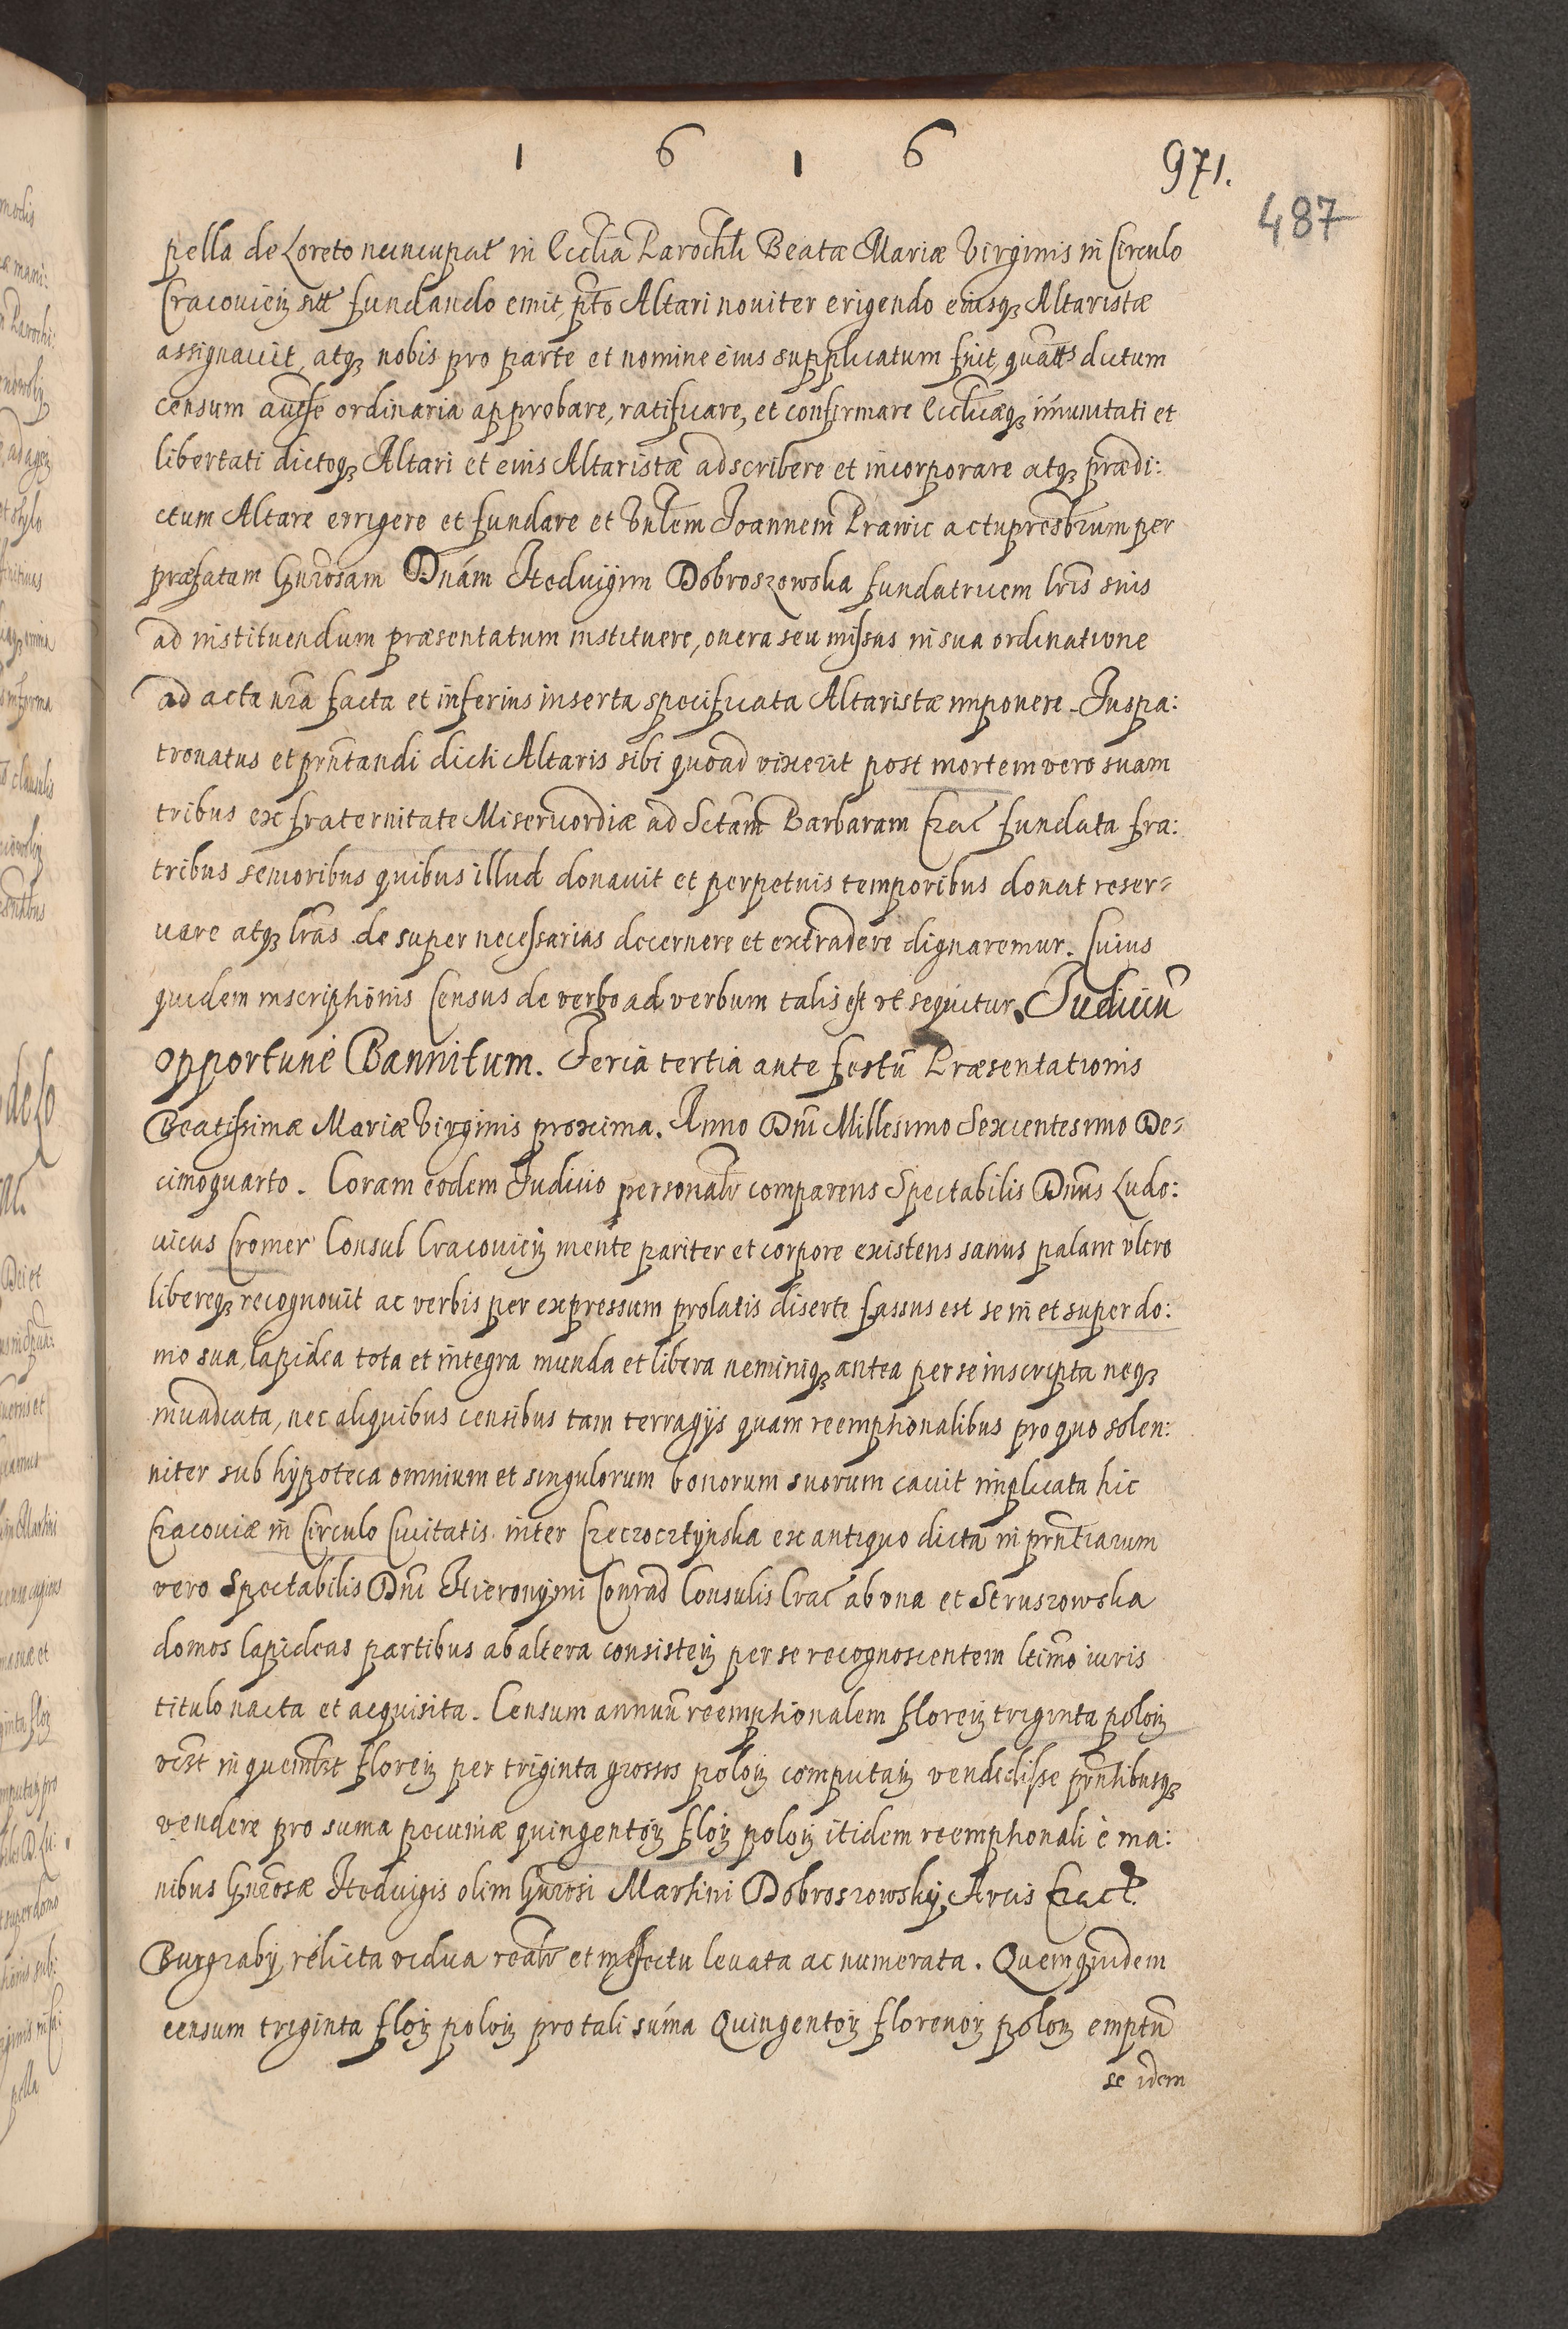 1 6 1 6
971.
487
pella de Loreto nuncupat in Ecclia Parochli Beatæ Mariæ Virginis in Circulo
Cracovien sitt fundando emit, pto Altari noviter erigendo eiusq Altaristæ
assignavit, atq nobis pro parte et nomine eius supplicatum fuit, quatts dictum
censum authe ordinaria approbare, ratificare, et confirmare Ecclicæq imunitati et
libertati dictoq Altari et eius Altaristæ adscribere et incorporare atq prædi:
ctum Altare errigere et fundare et Vnlem Joannem Prawic actu presbrum per
præfatam Gnrosam Dnám Hedvigim Dobroszowska fundatricem lris suis
ad instituendum præsentatum instituere, onera seu missas in sua ordinatione
ad acta nra facta et inferius inserta specificata Altaristæ imponere. Juspa:
tronatus et prntandi dicti Altaris sibi quoad vixerit post mortem vero suam
tribus ex fraternitate Misericordiæ ad Sctam Barbaram Crac fundata fra:
tribus senioribus quibus illud donavit et perpetuis temporibus donat reser=
uare atq lras de super necessarias decernere et extradere dignaremur. Cuius
quidem inscriptionis Census de verbo ad verbum talis est ut sequitur. Judiciu
opportune Bannitum. Feria tertia ante festu Præsentationis
Beatissimæ Mariæ Virginis proxima. Anno Dni Millesimo Sexcentesimo De=
cimoquarto. Coram eodem Judicio personalr comparens Spectabilis Dnus Ludo:
uicus Cromer Consul Cracovien mente pariter et corpore existens sanus palam vltro
libereq recognouit ac verbis per expressum prolatis diserte fassus est se in et super do:
mo sua lapidea tota et integra munda et libera neminiq antea per se inscripta neq
invadiata, nec aliquibus censibus tam terragijs quam reemptionalibus pro quo solen:
niter sub hypoteca omnium et singulorum bonorum suorum cavit implicata hic
Cracoviæ in Circulo Civitatis inter Czeczotczynska ex antiquo dicta in prntiarum
vero Spectabilis Dni Hieronymi Conrad Consulis Crac ab vna et Struszowska
domos lapideas partibus ab altera consisten per se recognoscentem ltimo iuris
titulo nacta et acquisita. Censum annuu reemptionalem floren triginta polon
in quemlibt floren per triginta grossos polon computan vendidisse prntibusq
vendere pro suma pecuniæ quingenton flon polon itidem reemptionali è ma:
nibus Gnrosæ Hedvigis olim Gnrosi Martini Dobroszowsky Arcis Crac
Burgraby relicta vidua realr et in effectu levata ac numerata. Quem quidem
censum triginta flon polon pro tali súma Quingenton florenon polon emptu
se idem